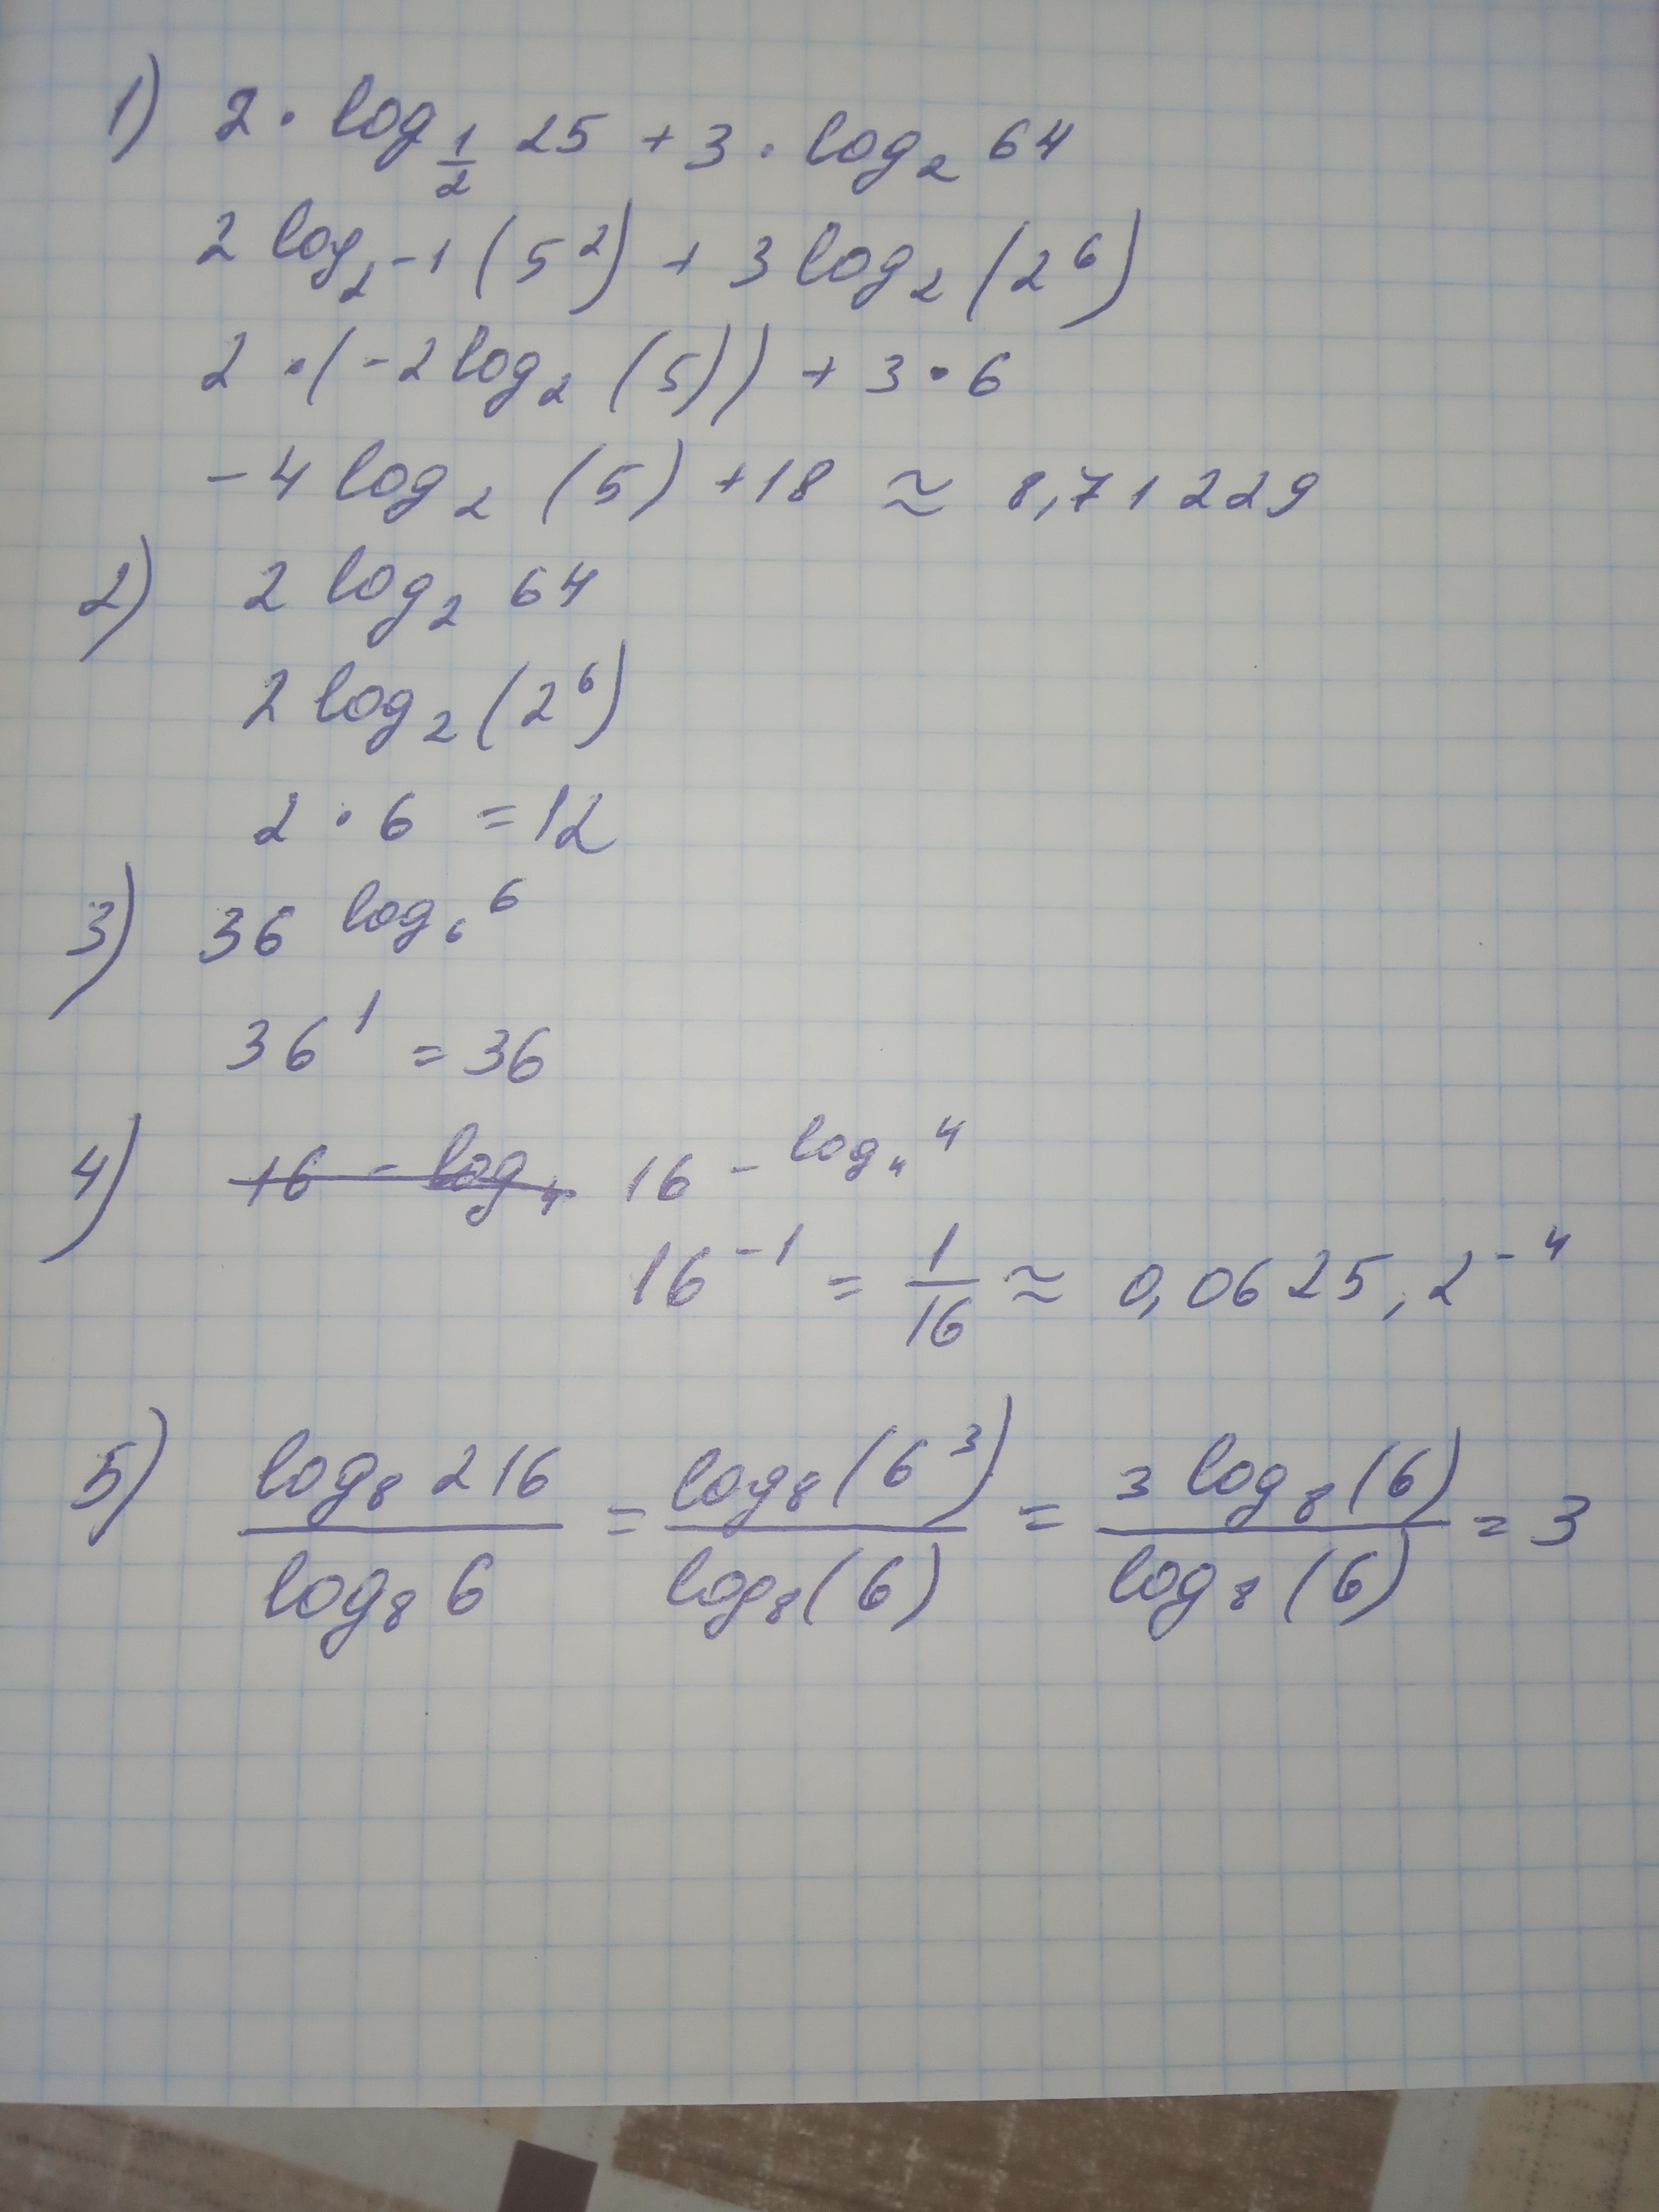 1) 2 · log_{1/2} 25 + 3 · log_2 64
2 log_{2^{-1}} (5^2) + 3 log_2 (2^6)
2 · (-2 log_2 (5)) + 3 · 6
-4 log_2 (5) + 18 ≈ 8,71229
2) 2 log_2 64
2 log_2 (2^6)
2 · 6 = 12
3) 36^{log_6 6}
36^1 = 36
4) ~~16 - log_4~~ 16^{-log_4 4}
16^{-1} = \frac{1}{16} ≈ 0,0625, 2^{-4}
5) \frac{log_8 216}{log_8 6} = \frac{log_8 (6^3)}{log_8 (6)} = \frac{3 log_8 (6)}{log_8 (6)} = 3